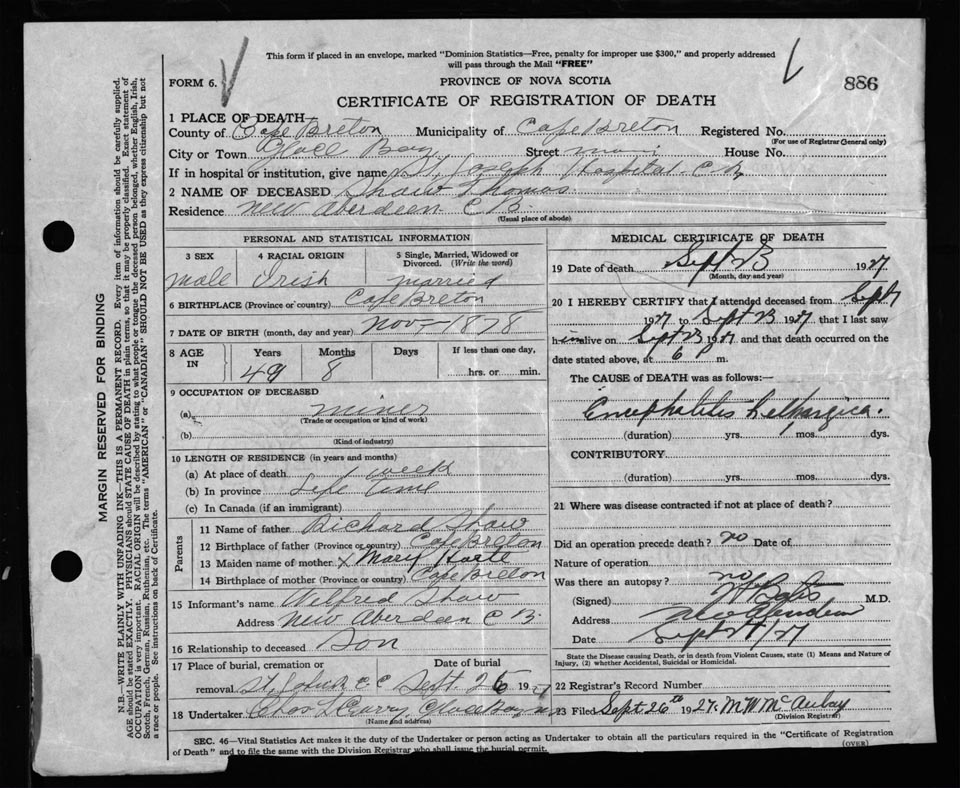 This form if placed in an envelope, marked "Dominion Statistics—Free, penalty for improper use $300," and properly addressed
will pass through the Mail "FREE"
FORM 6.
PROVINCE OF NOVA SCOTIA
886
CERTIFICATE OF REGISTRATION OF DEATH
1 PLACE OF DEATH—
County of Cape Breton Municipality of Cape Breton Registered No.
(For use of Registrar General only)
City or Town Glace Bay Street House No.
If in hospital or institution, give name St. Joseph Hospital
2 NAME OF DECEASED Shaw Thomas
Residence New Aberdeen C B.
(Usual place of abode)
PERSONAL AND STATISTICAL INFORMATION
3 SEX 4 RACIAL ORIGIN 5 Single, Married, Widowed or
Divorced. (Write the word)
Male Irish Married
6 BIRTHPLACE (Province or country) Cape Breton
7 DATE OF BIRTH (month, day and year) Nov— 1878
8 AGE IN Years Months Days If less than one day,
49 8 hrs. or min.
9 OCCUPATION OF DECEASED
(a) Miner
(Trade or occupation or kind of work)
(b)
(Kind of industry)
10 LENGTH OF RESIDENCE (in years and months)
(a) At place of death 1 week
(b) In province Life time
(c) In Canada (if an immigrant)
Parents
11 Name of father Richard Shaw
12 Birthplace of father (Province or country) Cape Breton
13 Maiden name of mother x Mary
14 Birthplace of mother (Province or country) Cape Breton
15 Informant's name Wilfred Shaw
Address New Aberdeen C B.
16 Relationship to deceased Son
17 Place of burial, cremation or Date of burial
removal St. Johns C C Sept. 26 1927
18 Undertaker Chas L Curry Glace Bay
(Name and address)
MEDICAL CERTIFICATE OF DEATH
19 Date of death Sept 23 1927
(Month, day and year)
20 I HEREBY CERTIFY that I attended deceased from Sept
1927 to Sept 23 1927 that I last saw
him alive on Sept 23 1927 and that death occurred on the
date stated above, at 6 P m.
The CAUSE OF DEATH was as follows:—
Encephalitis Lethargica.
(duration) yrs. 1 mos. dys.
CONTRIBUTORY
(duration) yrs. mos. dys.
21 Where was disease contracted if not at place of death?
Did an operation precede death? no Date of
Nature of operation
Was there an autopsy? no
(Signed) M.D.
Address New Aberdeen
Date Sept 27
State the Disease causing Death, or in death from Violent Causes, state (1) Means and Nature of
Injury, (2) whether Accidental, Suicidal or Homicidal.
22 Registrar's Record Number
23 Filed Sept 26th 1927. M W McAulay
(Division Registrar)
SEC. 46—Vital Statistics Act makes it the duty of the Undertaker or person acting as Undertaker to obtain all the particulars required in the "Certificate of Registration
of Death" and to file the same with the Division Registrar who shall issue the burial permit.
(OVER)
MARGIN RESERVED FOR BINDING
N.B.—WRITE PLAINLY WITH UNFADING INK—THIS IS A PERMANENT RECORD. Every item of information should be carefully supplied.
AGE should be stated EXACTLY. PHYSICIANS should STATE CAUSE OF DEATH in plain terms, so that it may be properly classified. Exact statement of
OCCUPATION is very important. RACIAL ORIGIN will be described by stating to what people or tongue the deceased person belonged, whether English, Irish,
Scotch, French, German, Russian, Ruthenian, etc. The terms "AMERICAN" or "CANADIAN" SHOULD NOT BE USED as they express citizenship but not
a race or people. See instructions on back of Certificate.